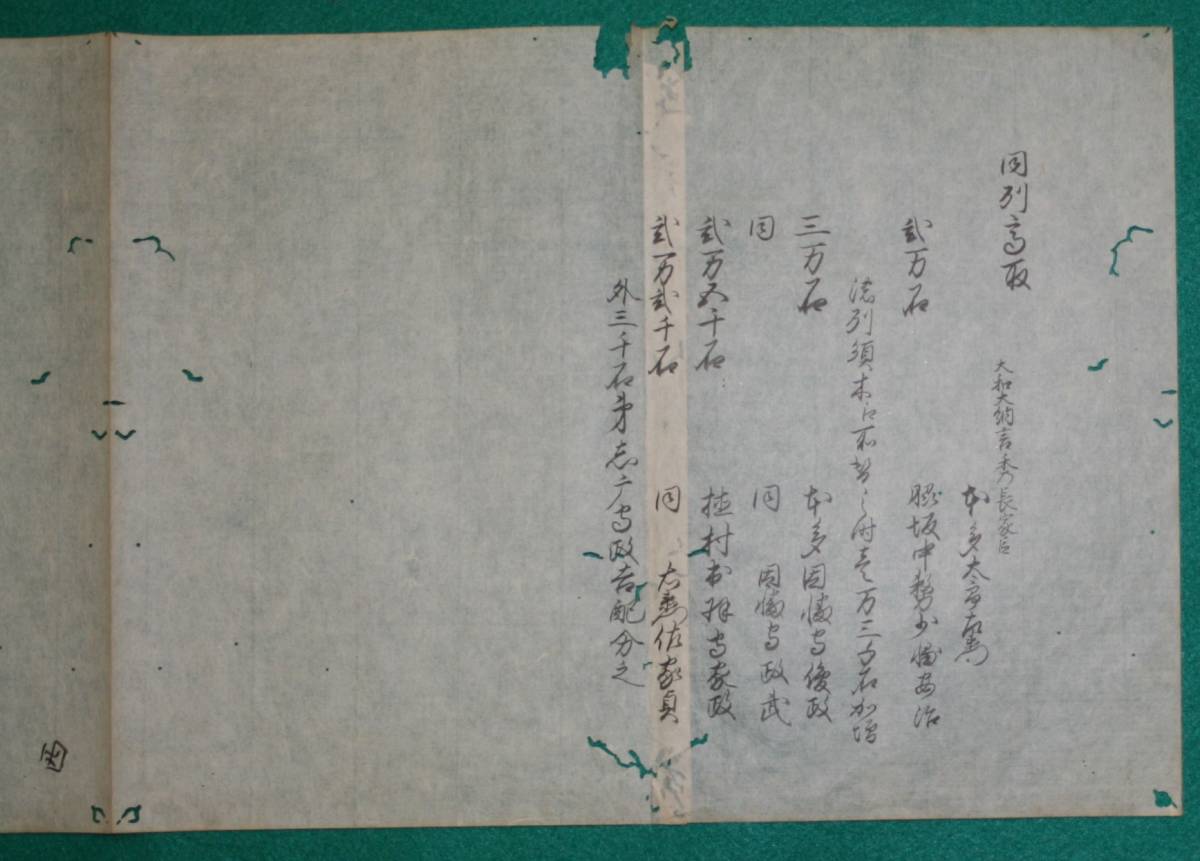 同列高取
大和大納言秀長家臣
本多太郎左衛門
弐万石 脇坂中務少輔安治
淡列須本江所替之時壱万三千石加増
三万石 本多因幡守俊政
同 同 因幡守政武
弐万五千石 植村出羽守家政
弐万弐千石 同 右衛門佐家貞
外三千石弟志ニ守政吉配分之